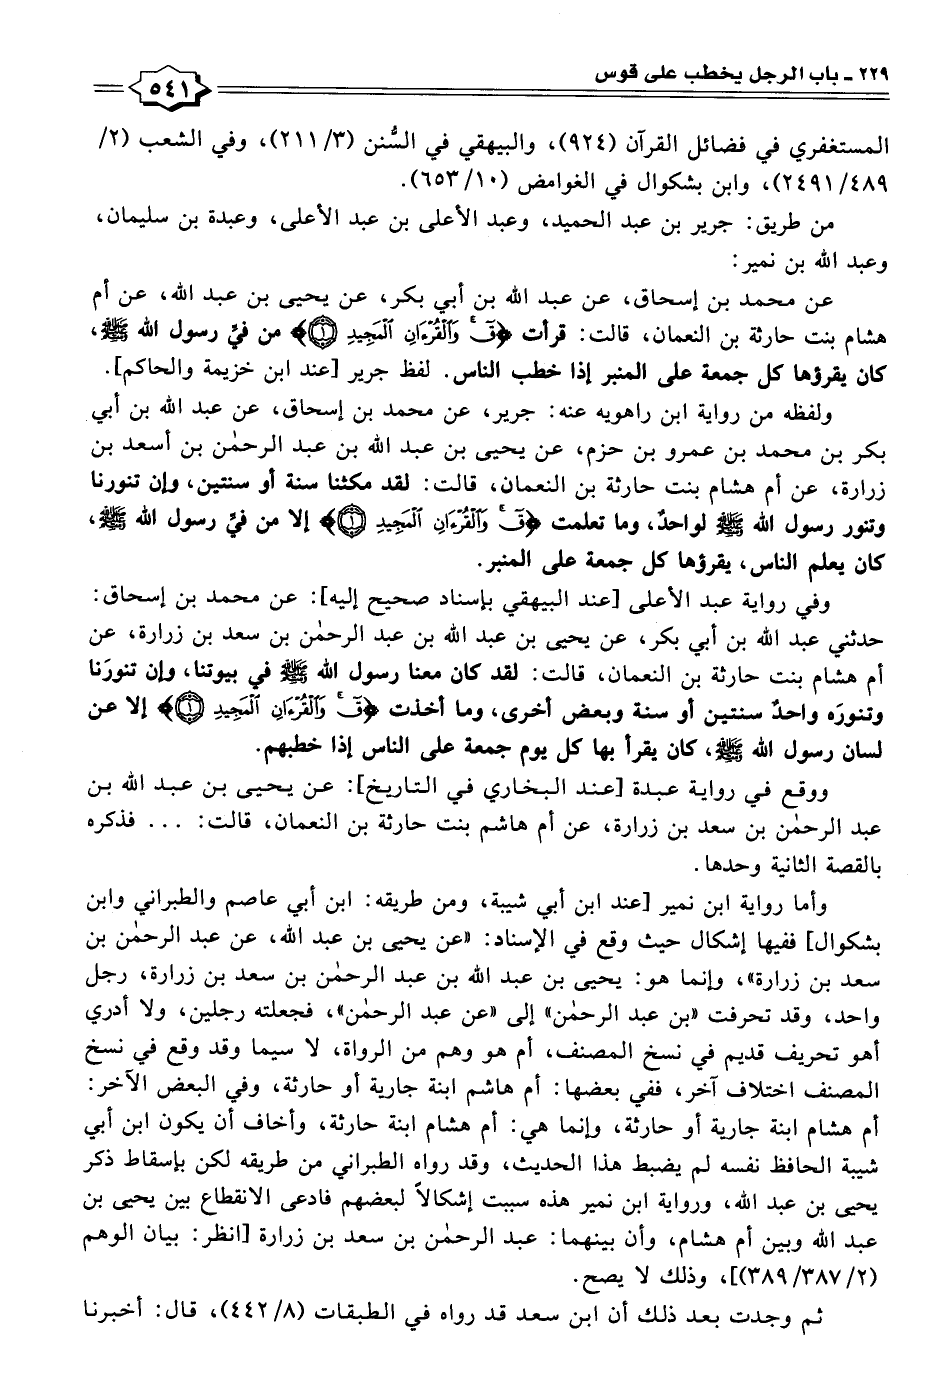 ٢٢٩ - باب الرجل يخطب على قوس
٥٤١
المستغفري في فضائل القرآن (٩٢٤)، والبيهقي في السُّنن (٢١١/٣)، وفي الشعب (٢/
٢٤٩١/٤٨٩)، وابن بشكوال في الغوامض (٦٥٣/١٠).
من طريق: جرير بن عبد الحميد، وعبد الأعلى بن عبد الأعلى، وعبدة بن سليمان،
وعبد الله بن نمير:
عن محمد بن إسحاق، عن عبد الله بن أبي بكر، عن يحيى بن عبد الله، عن أم
هشام بنت حارثة بن النعمان، قالت: قرأت ﴿قٓ وَٱلْقُرْءَانِ ٱلْمَجِيدِ ۝١﴾ من فيِّ رسول الله ﷺ،
كان يقرؤها كل جمعة على المنبر إذا خطب الناس. لفظ جرير [عند ابن خزيمة والحاكم].
ولفظه من رواية ابن راهويه عنه: جرير، عن محمد بن إسحاق، عن عبد الله بن أبي
بكر بن محمد بن عمرو بن حزم، عن يحيى بن عبد الله بن عبد الرحمٰن بن أسعد بن
زرارة، عن أم هشام بنت حارثة بن النعمان، قالت: لقد مكثنا سنة أو سنتين، وإن تنورنا
وتنور رسول الله ﷺ لواحدٌ، وما تعلمت ﴿قٓ وَٱلْقُرْءَانِ ٱلْمَجِيدِ ۝١﴾ إلا من فيِّ رسول الله ﷺ،
كان يعلم الناس، يقرؤها كل جمعة على المنبر.
وفي رواية عبد الأعلى [عند البيهقي بإسناد صحيح إليه]: عن محمد بن إسحاق:
حدثني عبد الله بن أبي بكر، عن يحيى بن عبد الله بن عبد الرحمٰن بن سعد بن زرارة، عن
أم هشام بنت حارثة بن النعمان، قالت: لقد كان معنا رسول الله ﷺ في بيوتنا، وإن تنورَنا
وتنورَه واحدٌ سنتين أو سنة وبعض أخرى، وما أخذت ﴿قٓ وَٱلْقُرْءَانِ ٱلْمَجِيدِ ۝١﴾ إلا عن
لسان رسول الله ﷺ، كان يقرأ بها كل يوم جمعة على الناس إذا خطبهم.
ووقع في رواية عبدة [عند البخاري في التاريخ]: عن يحيى بن عبد الله بن
عبد الرحمٰن بن سعد بن زرارة، عن أم هاشم بنت حارثة بن النعمان، قالت: ... فذكره
بالقصة الثانية وحدها.
وأما رواية ابن نمير [عند ابن أبي شيبة، ومن طريقه: ابن أبي عاصم والطبراني وابن
بشكوال] ففيها إشكال حيث وقع في الإسناد: «عن يحيى بن عبد الله، عن عبد الرحمٰن بن
سعد بن زرارة»، وإنما هو: يحيى بن عبد الله بن عبد الرحمٰن بن سعد بن زرارة، رجل
واحد، وقد تحرفت «بن عبد الرحمٰن» إلى «عن عبد الرحمٰن»، فجعلته رجلين، ولا أدري
أهو تحريف قديم في نسخ المصنف، أم هو وهم من الرواة، لا سيما وقد وقع في نسخ
المصنف اختلاف آخر، ففي بعضها: أم هاشم ابنة جارية أو حارثة، وفي البعض الآخر:
أم هشام ابنة جارية أو حارثة، وإنما هي: أم هشام ابنة حارثة، وأخاف أن يكون ابن أبي
شيبة الحافظ نفسه لم يضبط هذا الحديث، وقد رواه الطبراني من طريقه لكن بإسقاط ذكر
يحيى بن عبد الله، ورواية ابن نمير هذه سببت إشكالاً لبعضهم فادعى الانقطاع بين يحيى بن
عبد الله وبين أم هشام، وأن بينهما: عبد الرحمٰن بن سعد بن زرارة [انظر: بيان الوهم
(٣٨٩/٣٨٧/٢)]، وذلك لا يصح.
ثم وجدت بعد ذلك أن ابن سعد قد رواه في الطبقات (٤٤٢/٨)، قال: أخبرنا